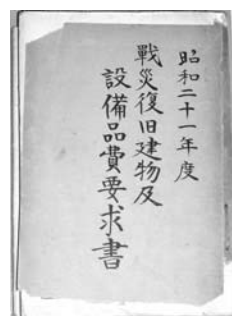 昭和二十一年度
戰災復旧建物及
設備品費要求書